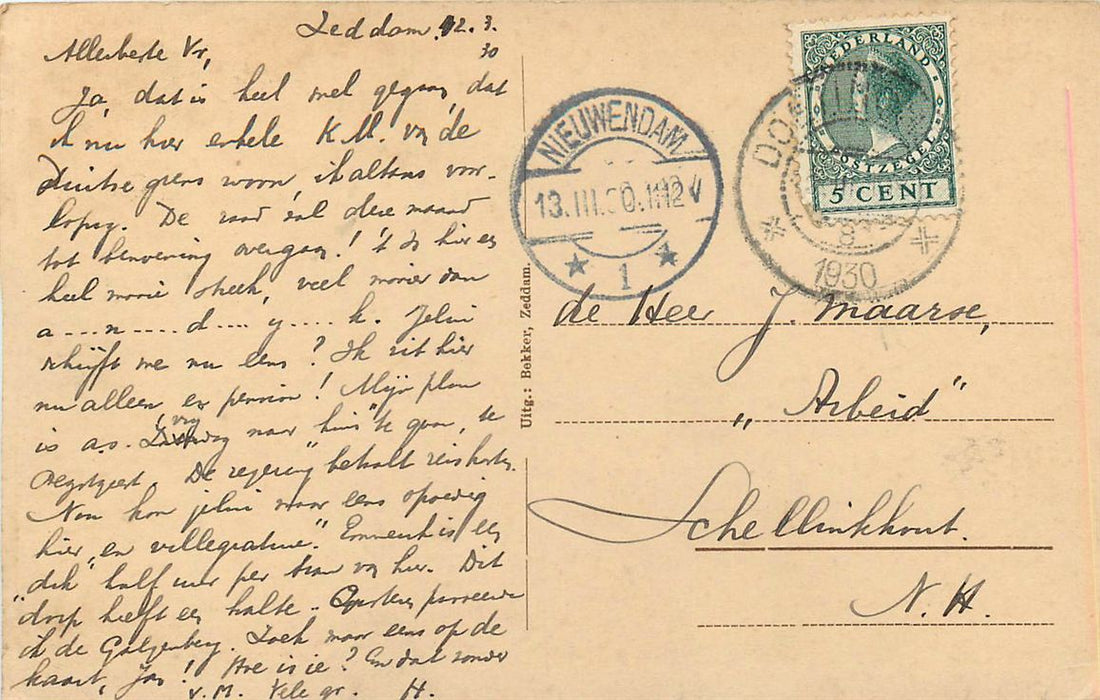 Zeddam. 12. 3.
30
Allerbeste Vr,
Ja, dat is heel wel gegaan, dat
ik nu hier enkele K.M. van de
Duitse grens woon, ik althans voor-
lopig. De raad zal deze maand
tot benoeming overgaan! 't Is hier een
heel mooie streek, veel mooier dan
a....n....d....y....k. Jelui
schrijft me nu eens? Ik zit hier
nu alleen en pension! Mijn plan
is a.s. Vrijdag naar "huis" te gaan, te
De regering betaalt reiskosten.
Nou kon jelui maar eens spoedig
hier "en villegiature". Emmerik is een
dik half uur per tram van hier. Dit
"dorp" heeft een halte. Gisteren
ik de Galgenberg. Zoek maar eens op de
kaart, Jan! Hoe is ie? En dat zonder
v.M. Vele gr. H.
Uitg.: Bekker, Zeddam.
NIEUWENDAM
13.III.30.11-12V
1
NEDERLAND
POSTZEGEL
5 CENT
8
1930
de Heer J. Maarse,
"Arbeid"
Schellinkhout.
N.H.